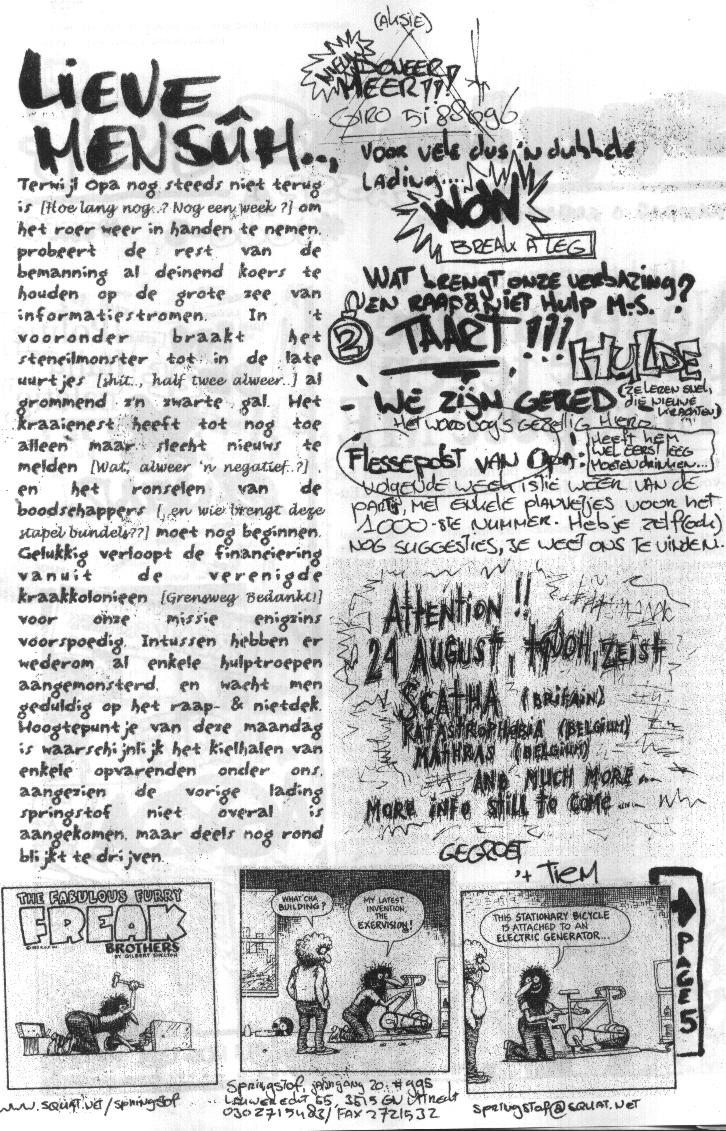 LIEVE
MENSÛH..,
Terwijl Opa nog steeds niet terug
is [Hoe lang nog..? Nog een week ?] om
het roer weer in handen te nemen,
probeert de rest van de
bemanning al deinend koers te
houden op de grote zee van
informatiestromen. In 't
vooronder braakt het
stencilmonster tot in de late
uurtjes [shit.., half twee alweer..] al
grommend z'n zwarte gal. Het
kraaienest heeft tot nog toe
alleen maar slecht nieuws te
melden [Wat, alweer 'n negatief..?] ,
en het ronselen van de
boodschappers [..en wie brengt deze
stapel bundels??] moet nog beginnen.
Gelukkig verloopt de financiering
vanuit de verenigde
kraakkolonieen [Grensweg Bedankt!]
voor onze missie enigzins
voorspoedig. Intussen hebben er
wederom al enkele hulptroepen
aangemonsterd, en wacht men
geduldig op het raap- & nietdek.
Hoogtepuntje van deze maandag
is waarschijnlijk het kielhalen van
enkele opvarenden onder ons,
aangezien de vorige lading
springstof niet overal is
aangekomen, maar deels nog rond
blijkt te drijven.
(AKSIE)
NIEUW
DONEER
MEER!?!
GIRO 5188096
VOOR VELE DUS 'N DUBBELE
LADING....
WOW
BREAK A LEG
WAT BRENGT ONZE VERBAZING?
EN RAAP & NIET HULP M.S.
2 TAART !!!
HULDE
- WE ZIJN GERED -
(ZE LEREN SNEL,
DIE NIEUWE
KRACHTEN)
HET WORD NOG'S GEZELLIG HIERO
FLESSEPOST VAN OPA:
! HEEFT HEM
WEL EERST LEEG
MOETEN DRINKEN...
VOLGENDE WEEK IS IE WEER VAN DE
PARTY, MET ENKELE PLANNETJES VOOR HET
1000-STE NUMMER. HEB JE ZELF (OOK)
NOG SUGGESTIES, JE WEET ONS TE VINDEN.
ATTENTION !!
24 AUGUST, ZEIST
SCATHA (BRITAIN)
KATASTROPHOBIA (BELGIUM)
MATHRAS (BELGIUM)
AND MUCH MORE...
MORE INFO STILL TO COME....
GEGROET
'T TIEM
PAGE 5
THE FABULOUS FURRY
FREAK
BROTHERS
BY GILBERT SHELTON
WHAT CHA
BUILDING?
MY LATEST
INVENTION,
THE
EXERVISION!
THIS STATIONARY BICYCLE
IS ATTACHED TO AN
ELECTRIC GENERATOR...
www.squat.net/springstof
SPRINGSTOF, jaargang 20, # 995
55, 3515 GN UTRECHT
030 2715483/ FAX 2721532
springstof@squat.net